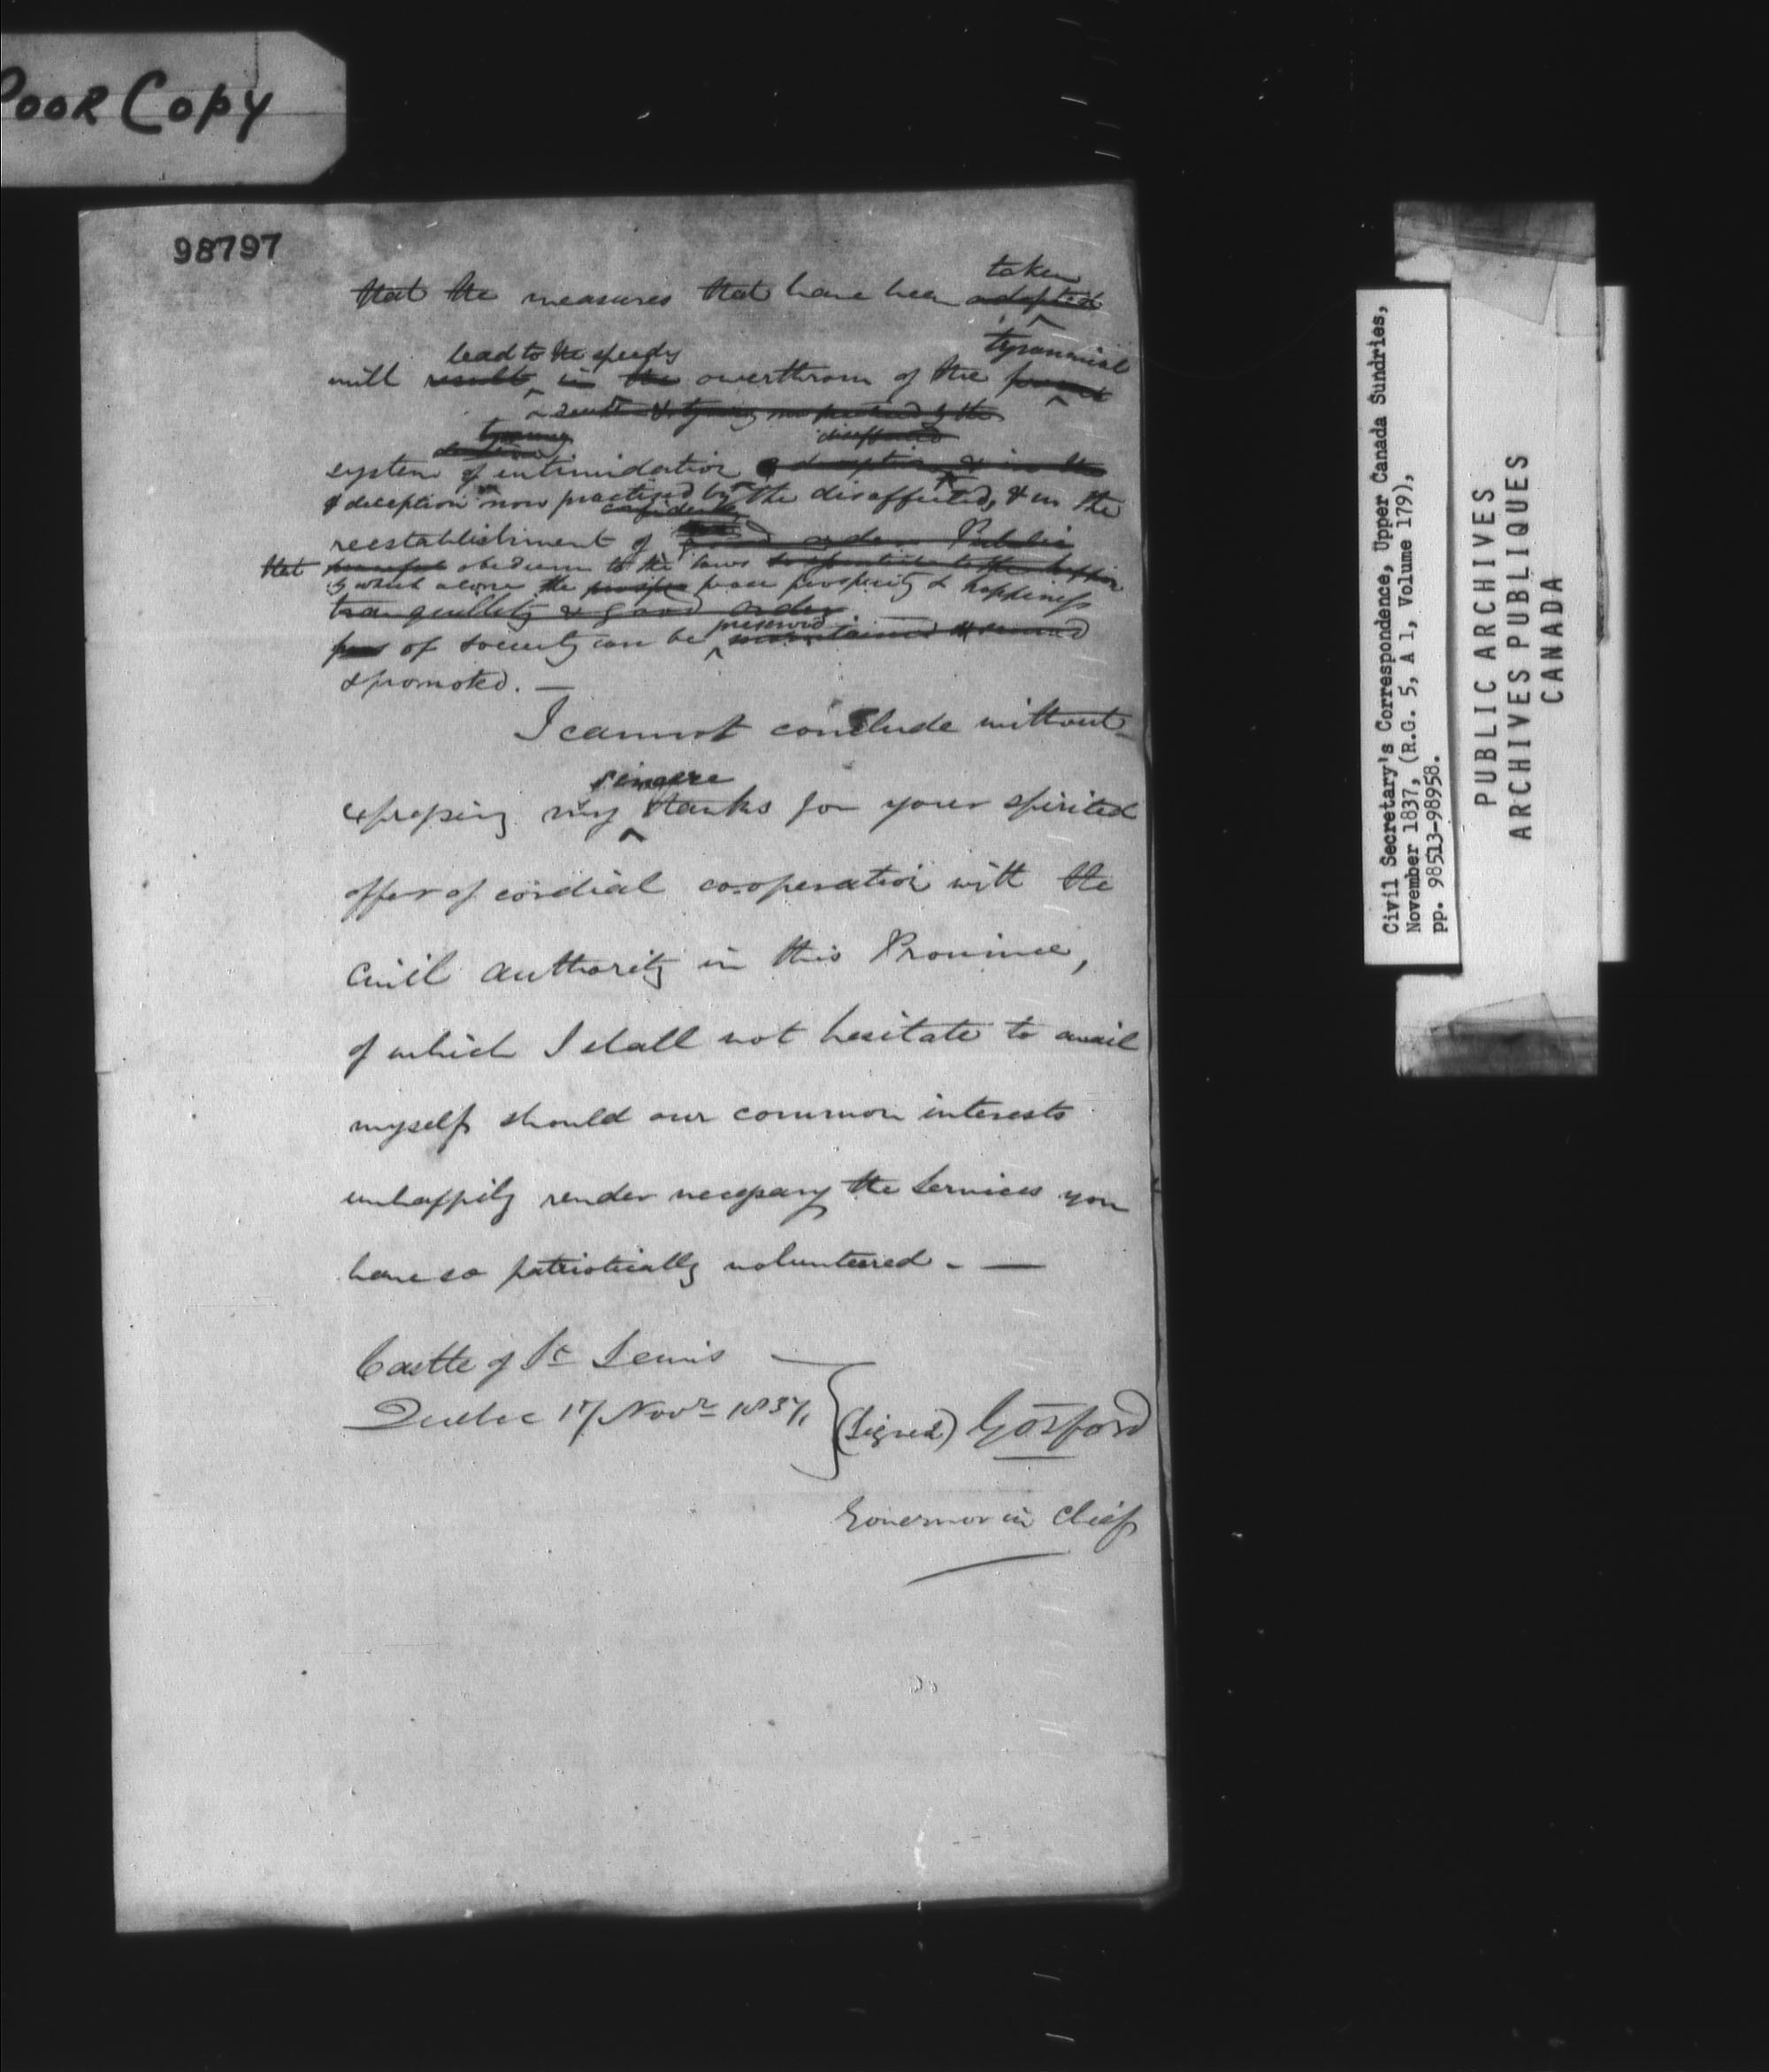 POOR COPY
98797
taken
that the measures that have been adopted
lead to the speedy tyrannical
will result in the overthrow of the
tyranny disaffected
system of intimidation deception & in the
& deception now practised by the disaffected, & in the
confidence
reestablishment of good order Public
that peaceful obedience to the laws
by which alone the prosper peace prosperity & happiness
tranquillity & good order
preserved
of society can be maintained & secured
& promoted. —
I cannot conclude without
sincere
expressing my thanks for your spirited
offer of cordial cooperation with the
Civil authority in this Province,
of which I shall not hesitate to avail
myself should our common interests
unhappily render necessary the Services you
have so patriotically volunteered. —
Castle of St Lewis —
Quebec 17 Novr 1837, (Signed) Gosford
Governor in Chief
Civil Secretary's Correspondence, Upper Canada Sundries,
November 1837, (R.G. 5, A 1, Volume 179),
pp. 98513-98958.
PUBLIC ARCHIVES
ARCHIVES PUBLIQUES
CANADA